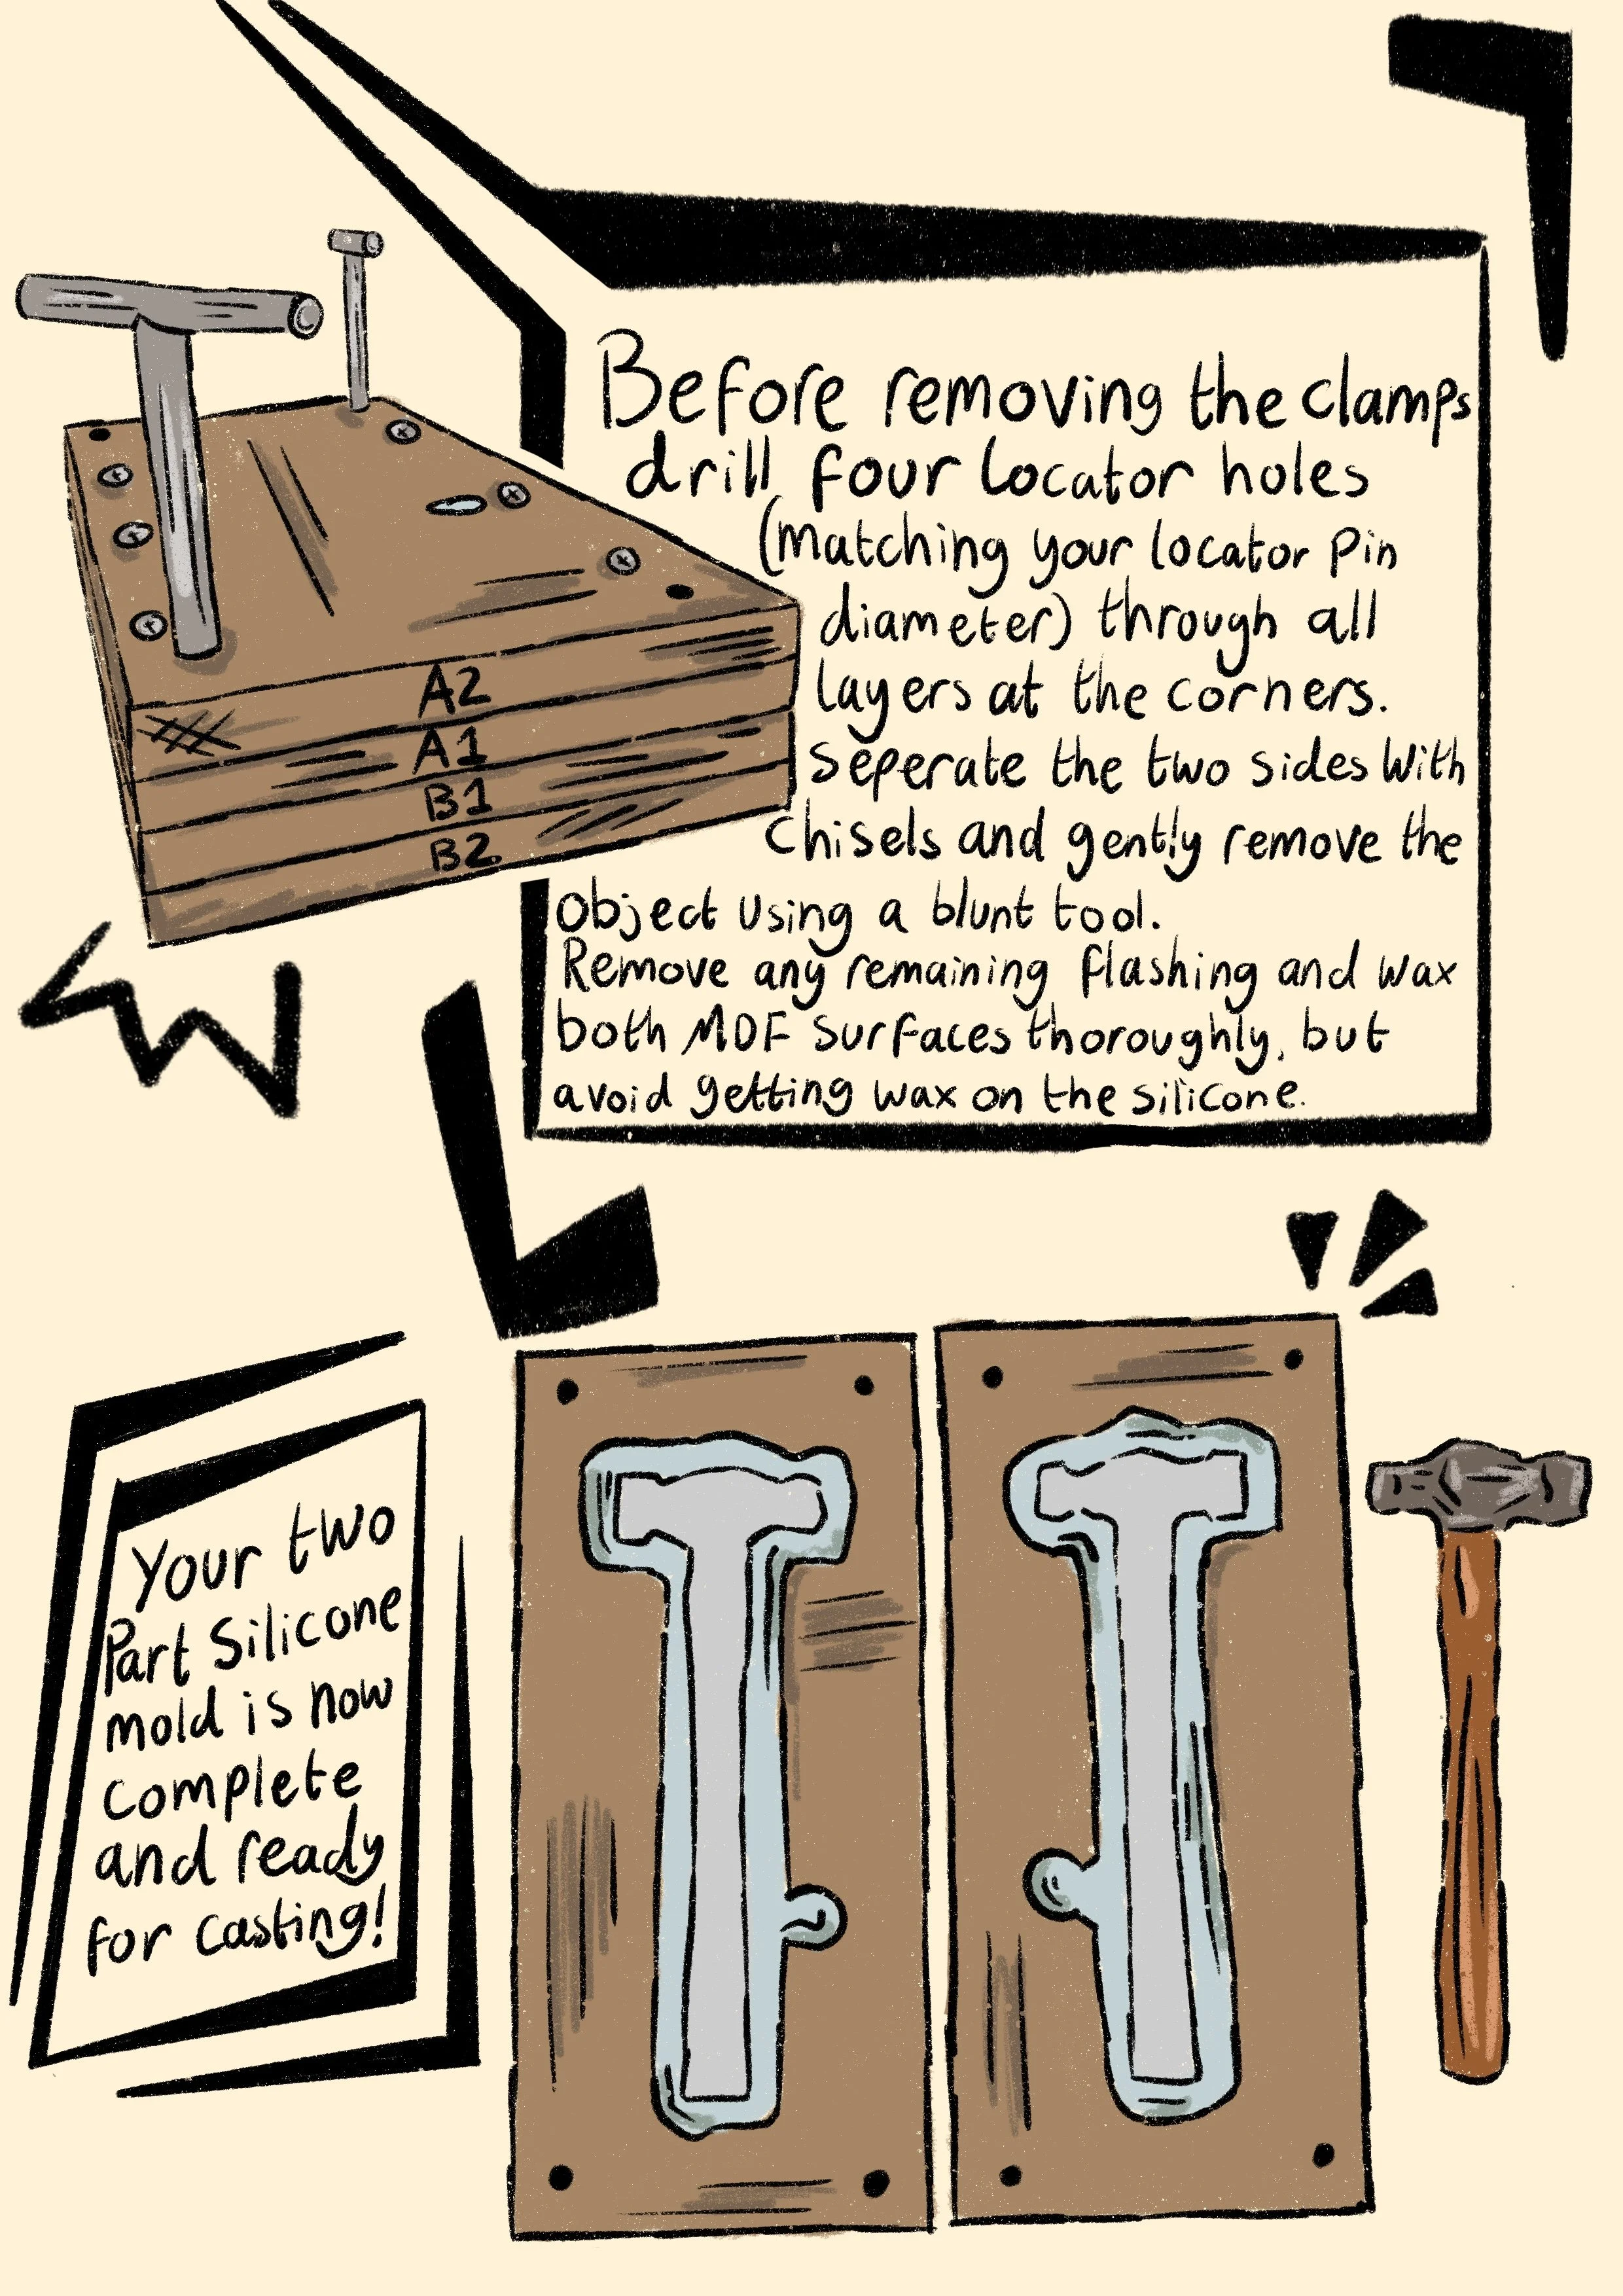 Before removing the clamps
drill four locator holes
(matching your locator pin
diameter) through all
layers at the corners.
Seperate the two sides with
chisels and gently remove the
object using a blunt tool.
Remove any remaining flashing and wax
both MDF surfaces thoroughly, but
avoid getting wax on the silicone.
A2
A1
B1
B2
Your two
Part Silicone
mold is now
complete
and ready
for casting!